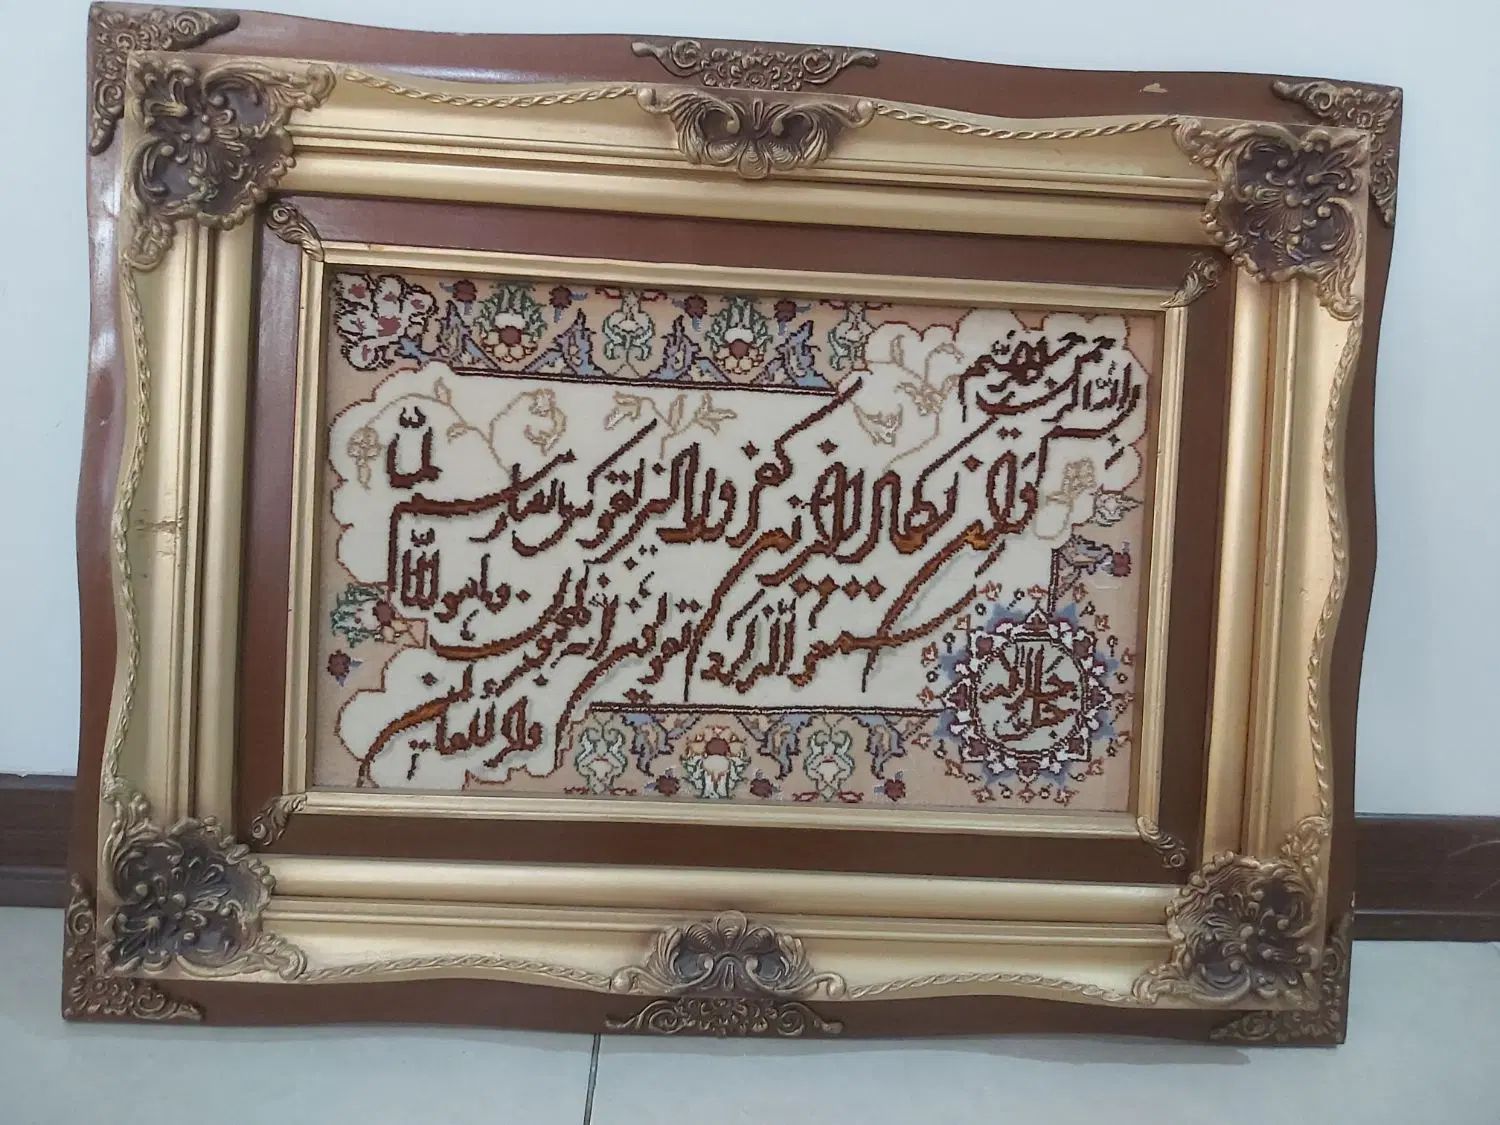 بسم الله الرحمن الرحيم
وان يكاد الذين كفروا ليزلقونك بابصارهم لما
سمعوا الذكر و يقولون انه لمجنون و ما هو الا
ذكر للعالمين
جل جلاله